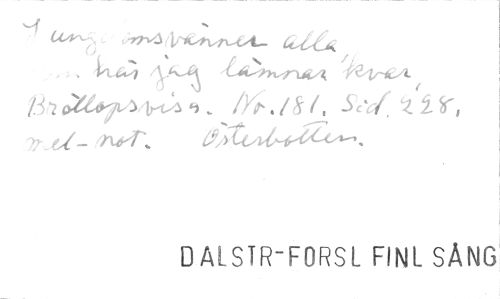 Ungdomsvänner alla,
som här jag lämnar kvar,
Bröllopsvisa. No. 181. Sid. 228.
mel-not. Österbotten.
DALSTR-FORSL FINL SÅNG